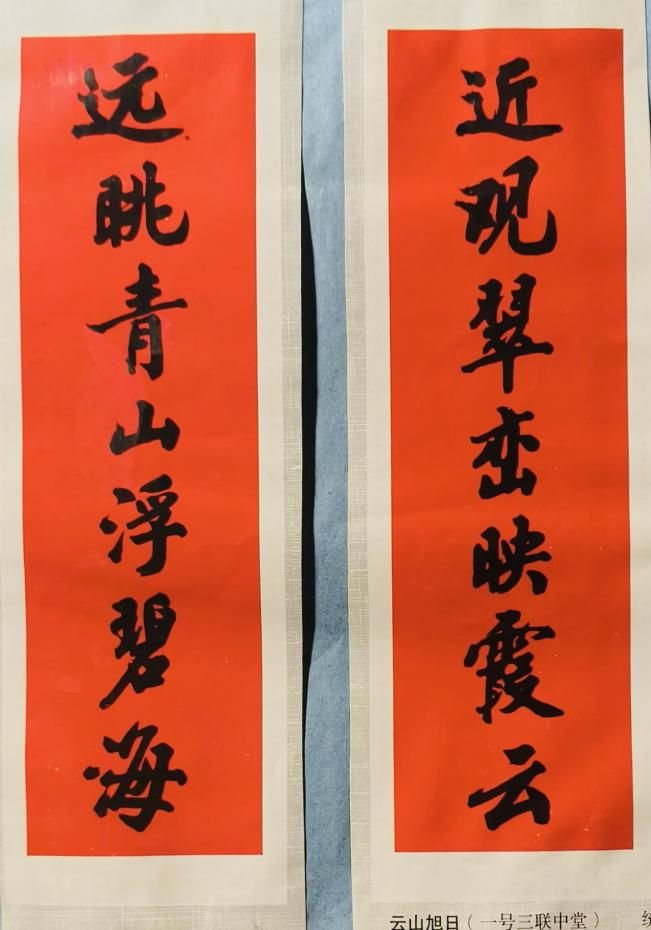 近观翠峦映霞云
远眺青山浮碧海
云山旭日（一号三联中堂）